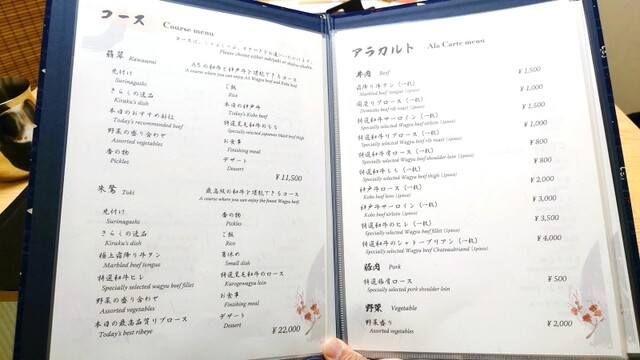 コース
Course menu
コースは、しゃぶしゃぶ、すきやきお選びいただけます。
Please choose either sukiyaki or shabu-shabu.
翡翠 Kawasemi
A5の和牛と神戸牛を堪能できるコース
A course where you can enjoy A5 Wagyu beef and Kobe beef
先付け
Surinagashi
きらくの逸品
Kiraku's dish
本日のおすすめお肉
Today's recommended beef
野菜の盛り合わせ
Assorted vegetables
香の物
Pickles
ご飯
Rice
本日の神戸牛
Today's Kobe beef
特選黒毛和牛のもも
Specially selected Japanese black beef thigh
お食事
Finishing meal
デザート
Dessert
¥11,500
朱鷺 Toki
最高級の和牛を堪能できるコース
A course where you can enjoy the finest Wagyu beef
先付け
Surinagashi
きらくの逸品
Kiraku's dish
極上霜降り牛タン
Marbled beef tongue
特選和牛ヒレ
Specially selected wagyu beef fillet
野菜の盛り合わせ
Assorted vegetables
本日の最高品質リブロース
Today's best ribeye
香の物
Pickles
ご飯
Rice
箸休め
Small dish
特選黒毛和牛のロース
Kurogewagyu loin
お食事
Finishing meal
デザート
Dessert
¥22,000
アラカルト
Ala Carte menu
牛肉 Beef
霜降り牛タン(一枚)
Marbled beef tongue (1piece)
¥1,500
国産牛リブロース(一枚)
Domestic beef rib roast (1piece)
¥1,000
特選和牛サーロイン(一枚)
Specially selected Wagyu beef sirloin (1piece)
¥1,500
特選和牛リブロース(一枚)
Specially selected Wagyu beef rib roast (1piece)
¥1,000
特選和牛肩ロース(一枚)
Specially selected Wagyu beef shoulder loin (1piece)
¥800
特選和牛もも(一枚)
Specially selected Wagyu beef thigh (1piece)
¥800
神戸牛ロース(一枚)
Kobe beef loin (1piece)
¥2,000
神戸牛サーロイン(一枚)
Kobe beef sirloin (1piece)
¥3,000
特選和牛のヒレ(一枚)
Specially selected Wagyu beef fillet (1piece)
¥3,500
特選和牛のシャトーブリアン(一枚)
Specially selected Wagyu beef Chateaubriand (1piece)
¥4,000
豚肉 Pork
特選豚肩ロース
Specially selected pork shoulder loin
¥500
野菜 Vegetable
野菜盛り
Assorted vegetables
¥2,000